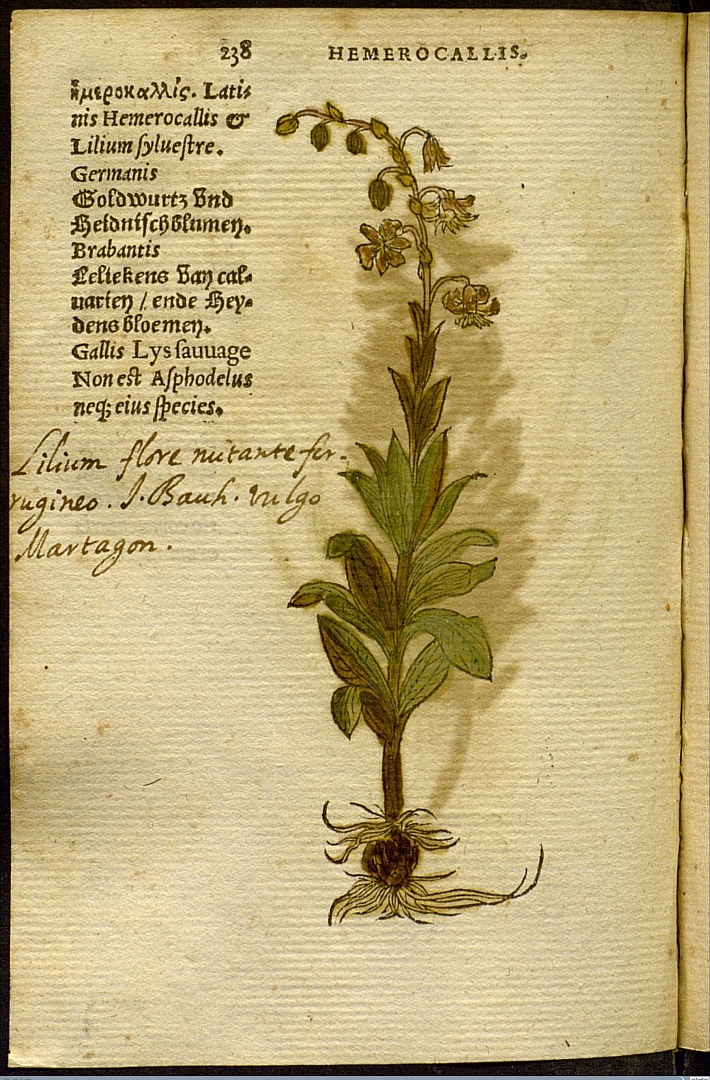 238 HEMEROCALLIS.
ἡμεροκαλλίς. Lati⸗
nis Hemerocallis &
Lilium ſylueſtre.
Germanis
Goldwurtz Vnd
Heidniſchblumen.
Brabantis
Leliekens Van cal⸗
uarien / ende Hey⸗
dens bloemen.
Gallis Lys ſauuage
Non est Aſphodelus
neq; eius ſpecies.
Lilium flore nutante fer-
rugineo. J. Bauh. vulgo
Martagon.